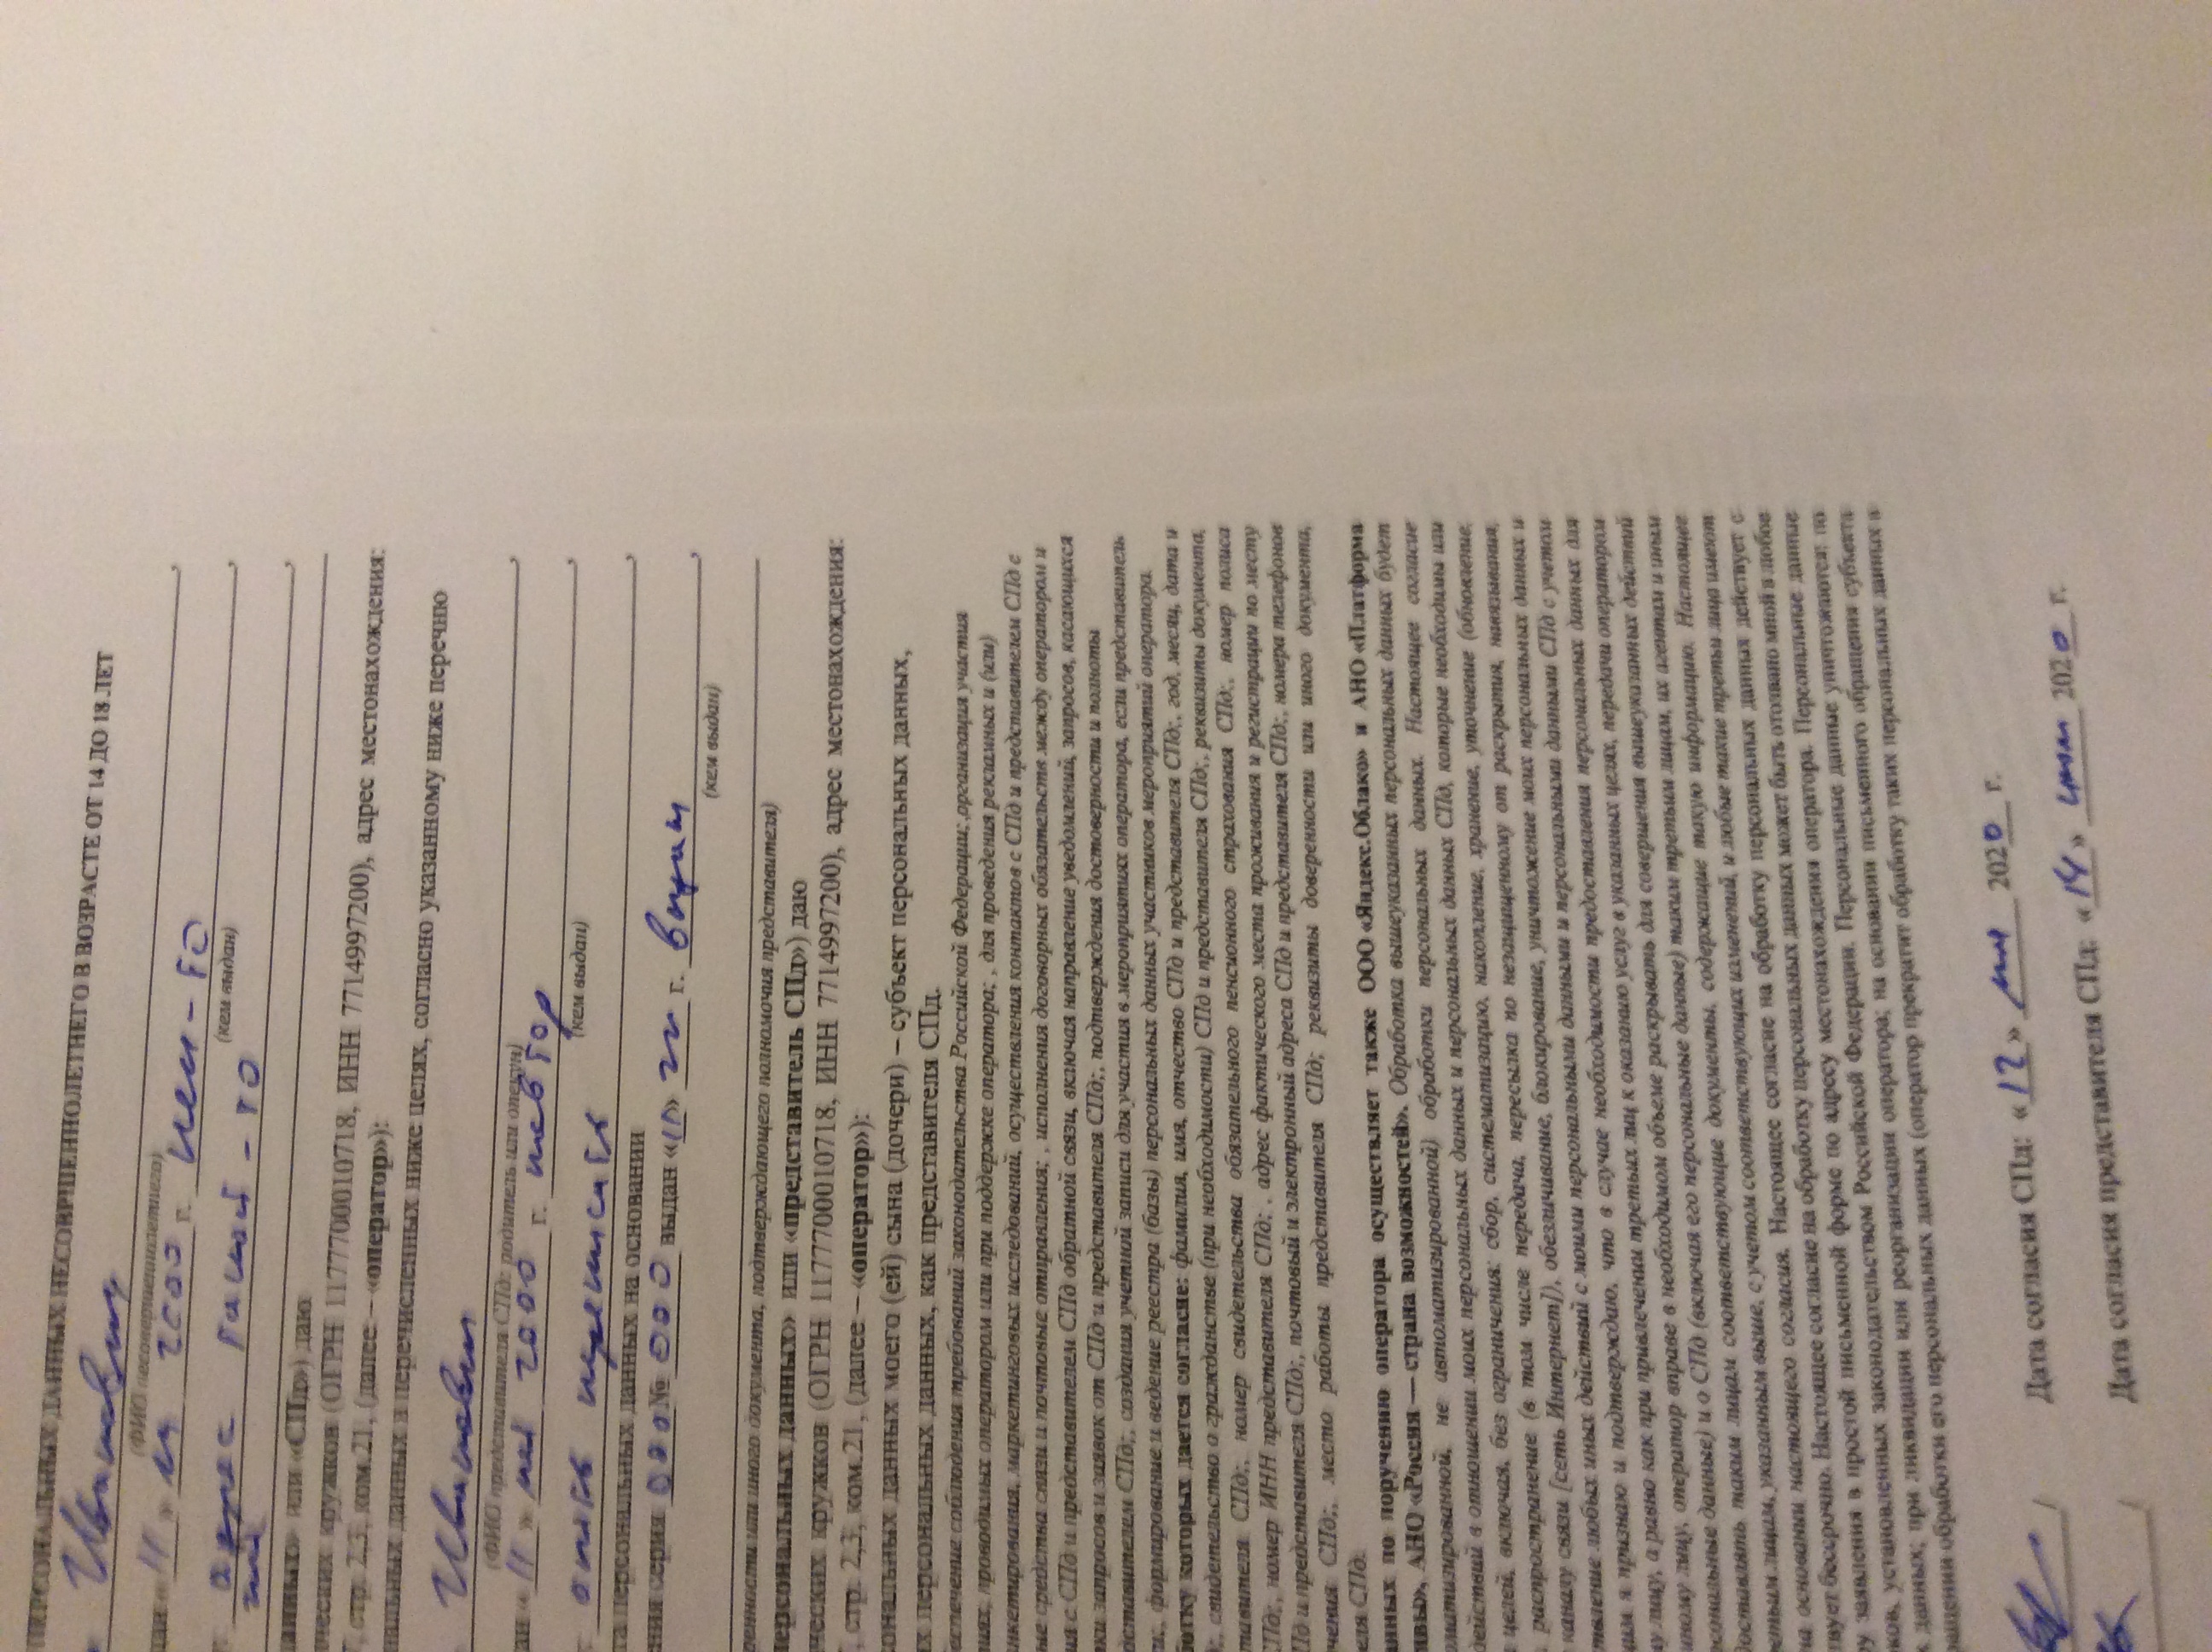 ПЕРСОНАЛЬНЫХ ДАННЫХ НЕСОВРШЕННОЛЕТНЕГО В ВОЗРАСТЕ ОТ 14 ДО 18 ЛЕТ
Иванович
(ФИО несовершеннолетнего)
дан «11» 2000 г. кем-то
(кем выдан)
адрес какой-то
данных» или «СПд») даю
ических кружков (ОГРН 1177700010718, ИНН 7714997200), адрес местонахождения:
, стр. 2,3, ком.21, (далее – «оператор»):
нальных данных в перечисленных ниже целях, согласно указанному ниже перечню
Иванович
(ФИО представителя СПд: родитель или опекун)
ан «11» мая 2000 г. повтор
(кем выдан)
опять переписать
та персональных данных на основании
ения серия 000 № 000 выдан «11» г.
(кем выдан)
ренности или иного документа, подтверждающего полномочия представителя)
персональных данных» или «представитель СПд») даю
ических кружков (ОГРН 1177700010718, ИНН 7714997200), адрес местонахождения:
, стр. 2,3, ком.21, (далее – «оператор»):
сональных данных моего (ей) сына (дочери) – субъект персональных данных,
их персональных данных, как представителя СПд.
еспечение соблюдения требований законодательства Российской Федерации; ,организация участия
тиях, проводимых оператором или при поддержке оператора; , для проведения рекламных и (или)
анкетирования, маркетинговых исследований, осуществления контактов с СПд и представителем СПд с
ые средства связи и почтовые отправления; , исполнения договорных обязательств между оператором и
ия с СПд и представителем СПд обратной связи, включая направление уведомлений, запросов, касающихся
тки запросов и заявок от СПд и представителя СПд;, подтверждения достоверности и полноты
едставителем СПд;, создания учетной записи для участия в мероприятиях оператора, если представитель
ти;, формирование и ведение реестра (базы) персональных данных участников мероприятий оператора.
ботку которых дается согласие: фамилия, имя, отчество СПд и представителя СПд;, год, месяц, дата и
;, свидетельство о гражданстве (при необходимости) СПд и представителя СПд;, реквизиты документа,
ставителя СПд;, номер свидетельства обязательного пенсионного страхования СПд;, номер полиса
СПд;, номер ИНН представителя СПд; , адрес фактического места проживания и регистрации по месту
Пд и представителя СПд;, почтовый и электронный адреса СПд и представителя СПд;, номера телефонов
чения СПд;, место работы представителя СПд; реквизиты доверенности или иного документа,
еля СПд.
анных по поручению оператора осуществляет также ООО «Яндекс.Облако» и АНО «Платформа
ивы», АНО «Россия — страна возможностей». Обработка вышеуказанных персональных данных будет
оматизированной, не автоматизированной) обработки персональных данных. Настоящее согласие
действий в отношении моих персональных данных и персональных данных СПд, которые необходимы или
целей, включая, без ограничения: сбор, систематизацию, накопление, хранение, уточнение (обновление,
, распространение (в том числе передача, пересылка по незащищенному от раскрытия, навязывания,
каналу связи [сеть Интернет]), обезличивание, блокирование, уничтожение моих персональных данных и
твление любых иных действий с моими персональными данными и персональными данными СПд с учетом
щим я признаю и подтверждаю, что в случае необходимости предоставления персональных данных для
му лицу, а равно как при привлечении третьих лиц к оказанию услуг в указанных целях, передачи оператором
иному лицу, оператор вправе в необходимом объеме раскрывать для совершения вышеуказанных действий
рсональные данные) и о СПд (включая его персональные данные) таким третьим лицам, их агентам и иным
доставлять таким лицам соответствующие документы, содержащие такую информацию. Настоящее
ретьим лицам, указанным выше, с учетом соответствующих изменений, и любые такие третьи лица имеют
на основании настоящего согласия. Настоящее согласие на обработку персональных данных действует с
твует бессрочно. Настоящее согласие на обработку персональных данных может быть отозвано мной в любое
ру заявления в простой письменной форме по адресу местонахождения оператора. Персональные данные
оков, установленных законодательством Российской Федерации. Персональные данные уничтожаются: по
х данных; при ликвидации или реорганизации оператора; на основании письменного обращения субъекта
ращении обработки его персональных данных (оператор прекратит обработку таких персональных данных в
Дата согласия СПд: «12» мая 2020 г.
Дата согласия представителя СПд: «14» 2020 г.